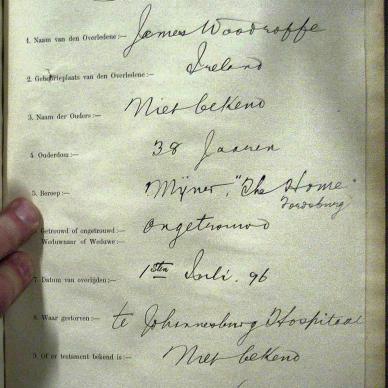 1. Naam van den Overledene:— James Woodroffe
2. Geboorteplaats van den Overledene:— Ireland
3. Naam der Ouders:— Niet bekend
4. Ouderdom:— 38 Jaaren
5. Beroep:— Mijner, "The Home"
Fordsburg
6. Getrouwd of ongetrouwd ongetrouwd
Weduwnaar of Weduwe:—
7. Datum van overlijden:— 1sten Juli. 96
8. Waar gestorven:— te Johannesburg Hospitaal
9. Of er testament bekend is:— Niet bekend